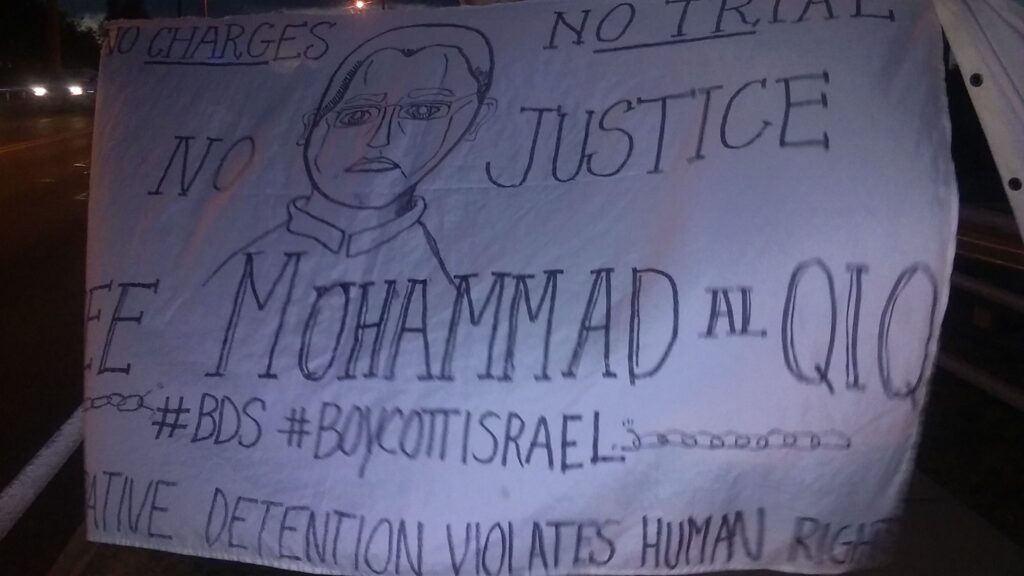 NO CHARGES
NO TRIAL
NO JUSTICE
EE MOHAMMAD AL QIQ
#BDS #BOYCOTTISRAEL
ATIVE DETENTION VIOLATES HUMAN RIGH